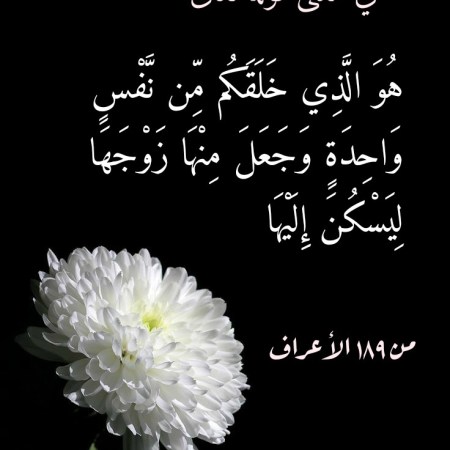 هُوَ الَّذِي خَلَقَكُم مِّن نَّفْسٍ
وَاحِدَةٍ وَجَعَلَ مِنْهَا زَوْجَهَا
لِيَسْكُنَ إِلَيْهَا
من ١٨٩ الأعراف